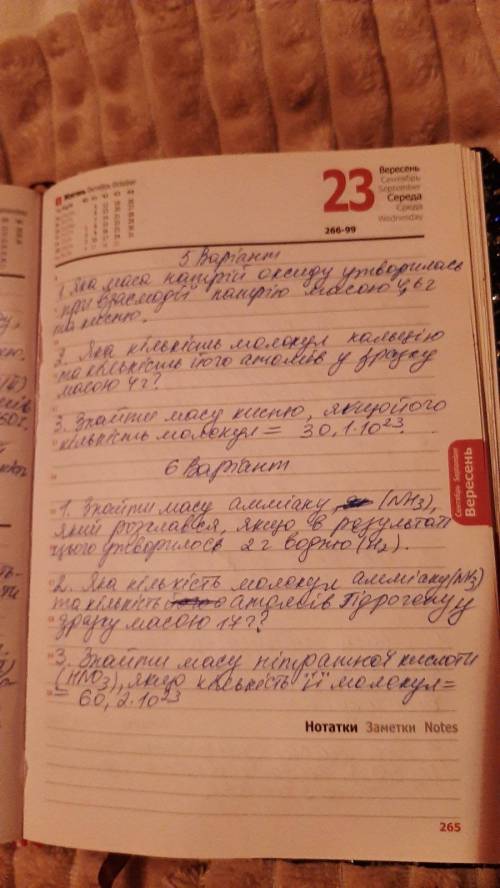 Жовтень Октябрь October
23
Вересень
Сентябрь
September
Середа
Среда
Wednesday
266-99
5 Варіант
1. Яка маса натрій оксиду утворилась
при взаємодії натрію масою 4,6 г
та кисню.
2. Яка кількість молокул кальцію
та кількість його атомів у зразку
масою 4 г?
3. Знайти масу кисню, якщо його
кількість молокул = 30,1·10²³.
6 Варіант
1. Знайти масу амміаку (NH3),
який розклався, якщо в результаті
цього утворилось 2 г водню (H2).
2. Яка кількість молокул амміаку (NH3)
та кількість атомів Гідрогену у
зразку масою 17 г?
3. Знайти масу нітратної кислоти
(HNO3), якщо кількість її молокул =
= 60,2·10²³
Сентябрь September
Вересень
Нотатки Заметки Notes
265